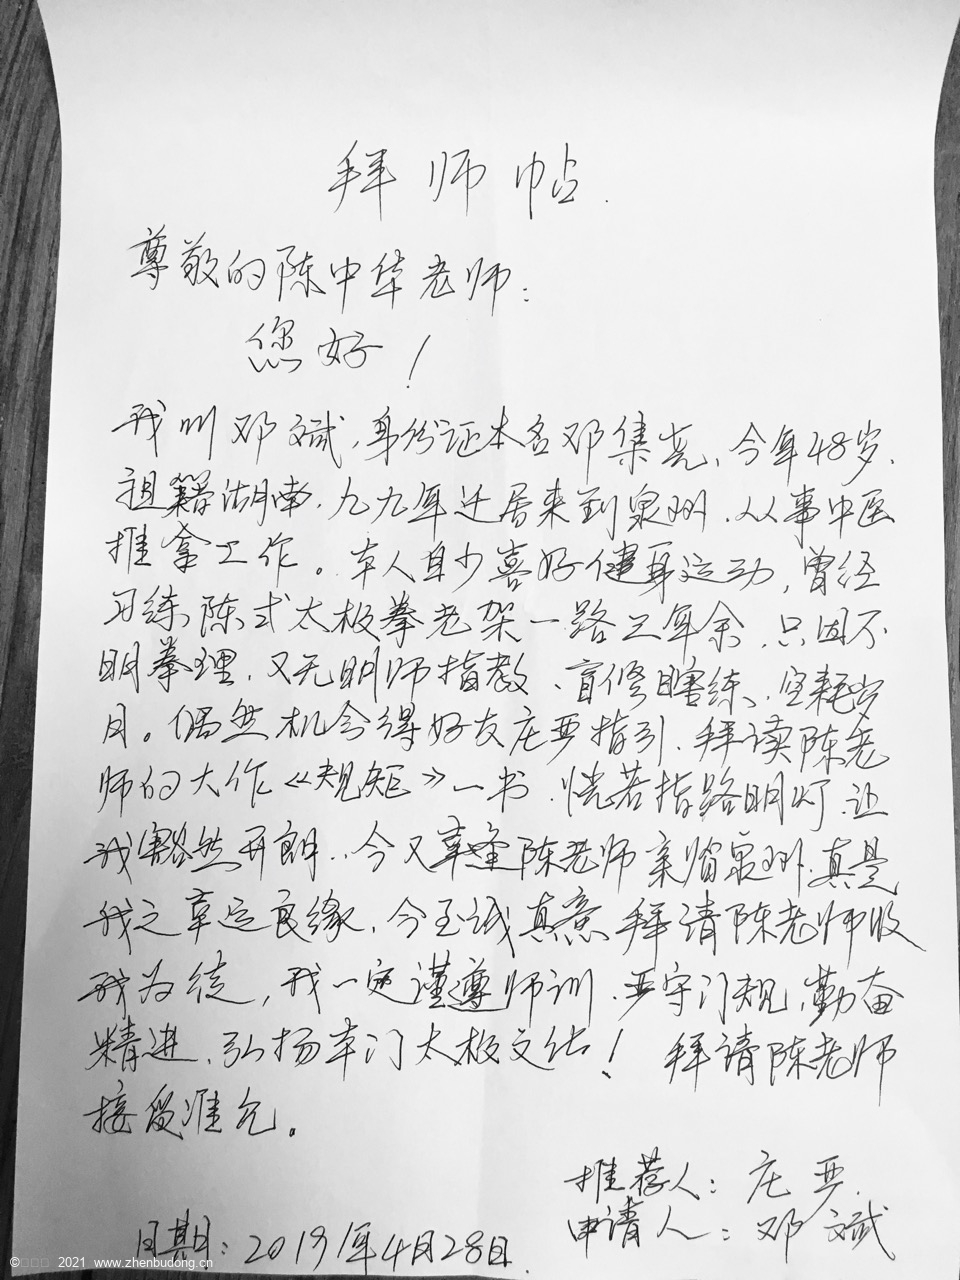 拜师帖.
尊敬的陈中华老师:
您好!
我叫邓斌,身份证本名邓集亮、今年48岁.
祖籍湖南.九九年迁居来到泉州.从事中医
推拿工作。本人自少喜好健身运动,曾经
习练陈式太极拳老架一路三年余.只因不
明拳理.又无明师指教、盲修瞎练、空耗岁
月。偶然机会得好友庄严指引.拜读陈老
师的大作《规矩》一书.恍若指路明灯.让
我豁然开朗..今又幸逢陈老师亲临泉州.真是
我之幸运良缘.今至诚真意拜请陈老师收
我为徒,我一定谨遵师训.严守门规、勤奋
精进、弘扬本门太极文化!拜请陈老师
接受准允。
推荐人:庄严.
申请人:邓斌
日期:2019年4月28日.
© 2021 www.zhenbudong.cn